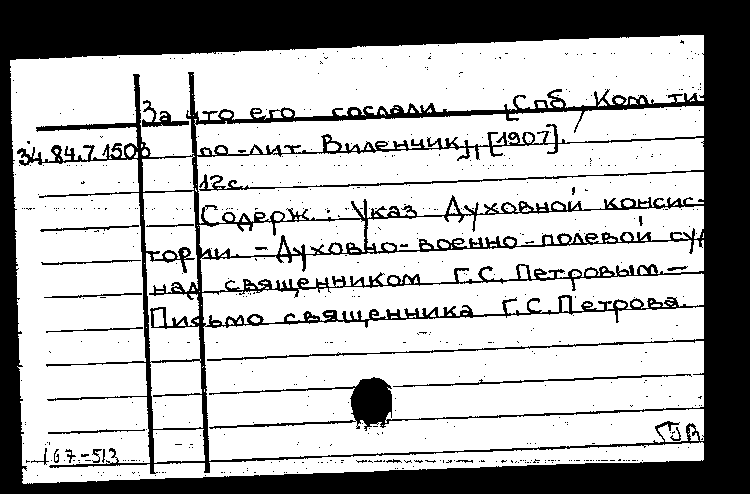 За что его сослали. [Спб, Ком. ти-
34.84.7.1503 по-лит. Виленчик], [1907].
12с.
Содерж.: Указ Духовной консис-
тории. - Духовно-военно-полевой суд
над священником Г.С. Петровым. -
Письмо священника Г.С. Петрова.
167-513